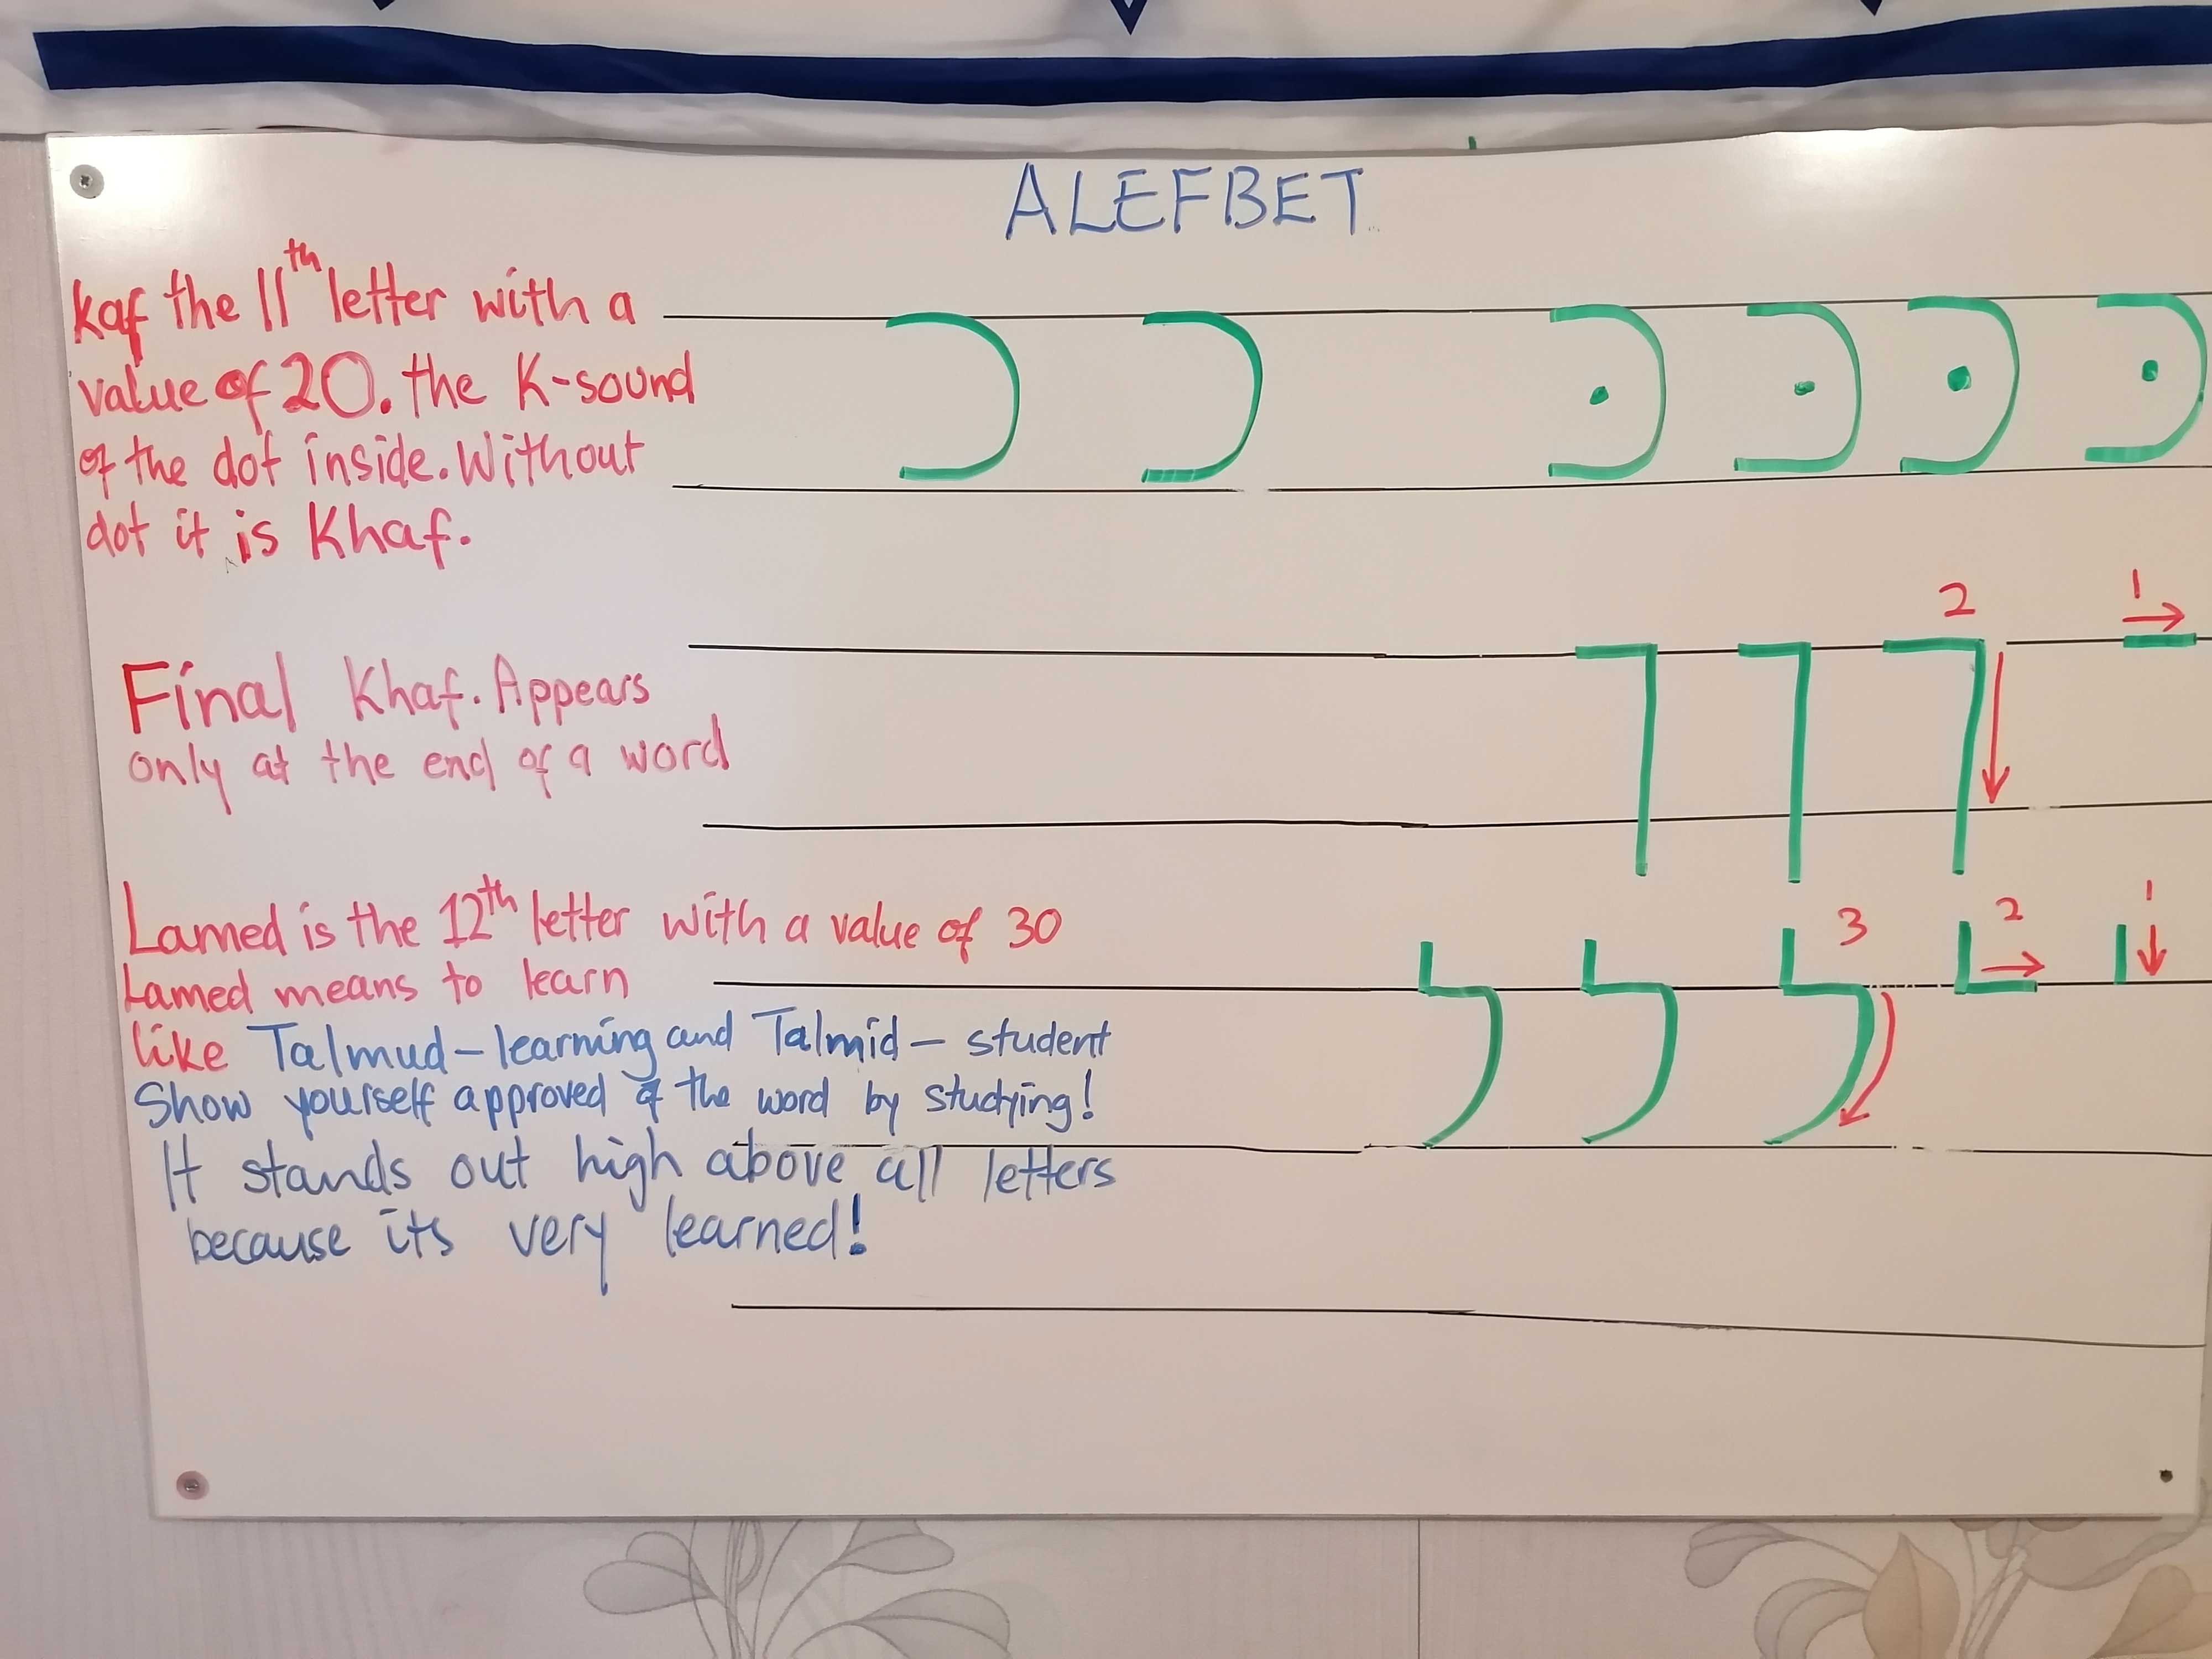 ALEFBET
kaf the 11th letter with a
value of 20. the K-sound
of the dot inside. Without
dot it is Khaf.
כ כ כּ כּ כּ כּ
2 1
Final Khaf. Appears
only at the end of a word
ך ך ך
Lamed is the 12th letter with a value of 30
3 2 1
Lamed means to learn
ל ל ל
like Talmud - learning and Talmid - student
Show yourself approved of the word by studying!
It stands out high above all letters
because its very learned!